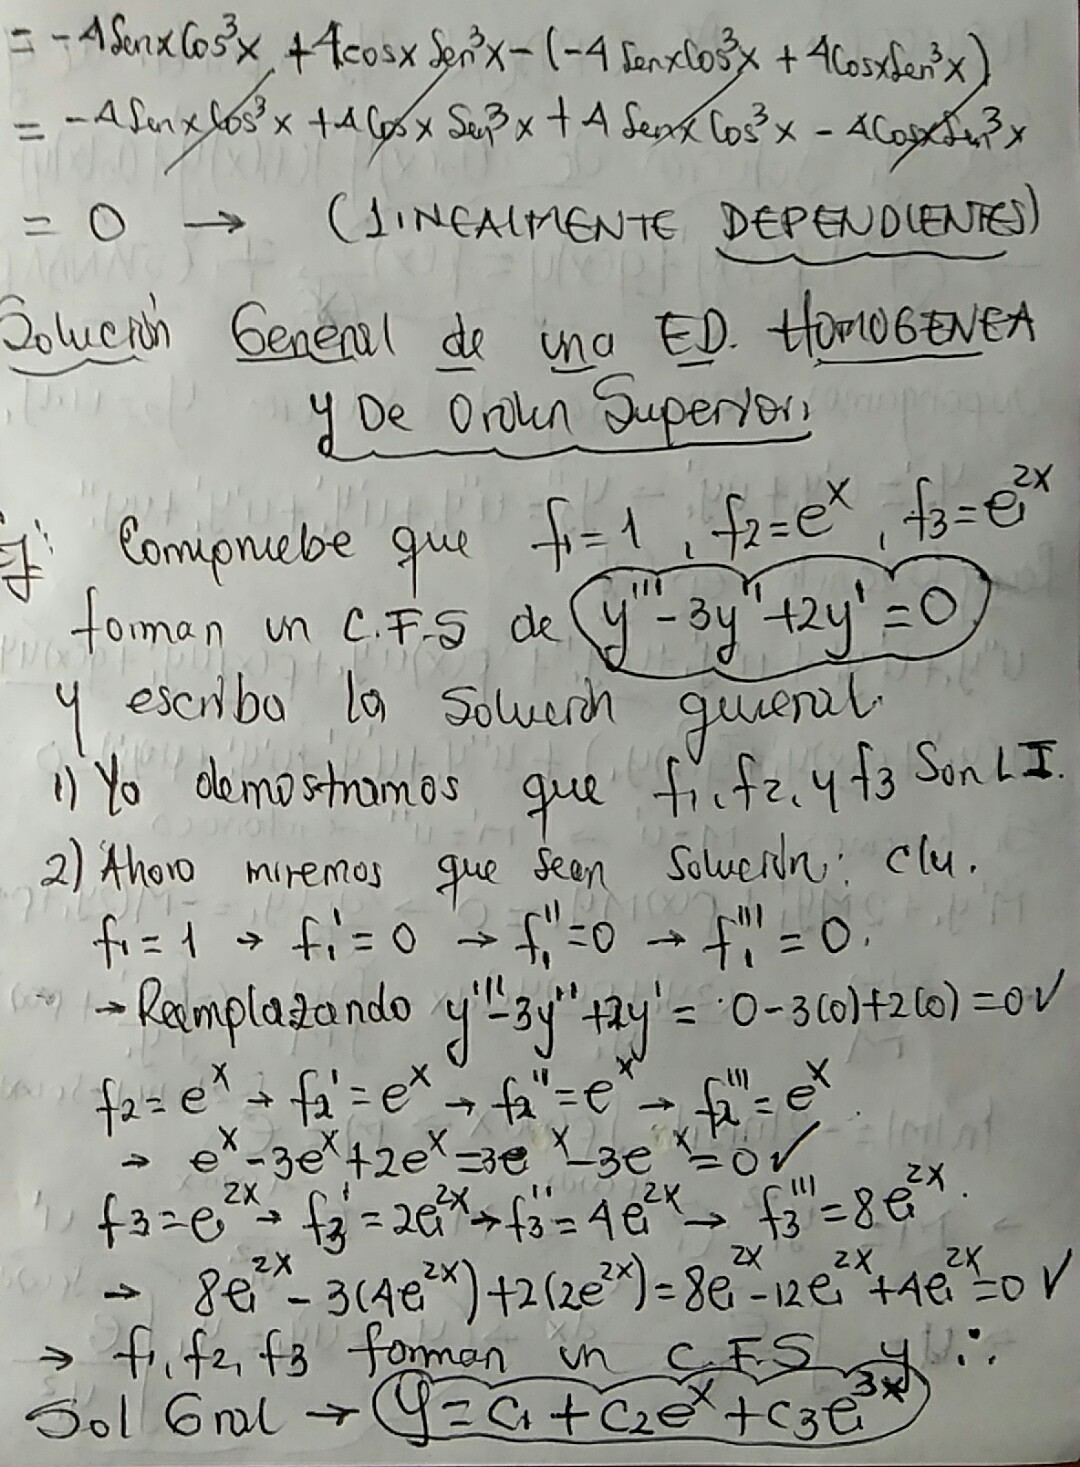 = -4Senx Cos³x + 4cosx Sen³x - (-4 Senx Cos³x + 4Cosx Sen³x)
= -4 Senx Cos³x + 4 Cosx Sen³x + 4 Senx Cos³x - 4Cosx Sen³x
= 0 → (LINEALMENTE DEPENDIENTES)
Solución General de una ED. HOMOGENEA
y De Orden Superior.
Ej: Compruebe que f₁=1, f₂=eˣ, f₃=e²ˣ
forman un C.F.S de y'''-3y''+2y'=0
y escriba la solución general.
1) Ya demostramos que f₁, f₂, y f₃ Son L I.
2) Ahora miremos que sean Solución: c/u.
f₁ = 1 → f₁' = 0 → f₁''=0 → f₁''' = 0.
→ Reemplazando y'''-3y''+2y' = 0-3(0)+2(0)=0 ✓
f₂=eˣ → f₂'=eˣ → f₂''=eˣ → f₂'''=eˣ.
→ eˣ-3eˣ+2eˣ=3eˣ-3eˣ=0 ✓
f₃=e²ˣ → f₃'=2e²ˣ → f₃''=4e²ˣ → f₃'''=8e²ˣ.
→ 8e²ˣ - 3(4e²ˣ)+2(2e²ˣ)=8e²ˣ-12e²ˣ+4e²ˣ=0 ✓
→ f₁, f₂, f₃ forman un C.F.S y ∴
Sol Gral → y=c₁+c₂eˣ+c₃e³ˣ